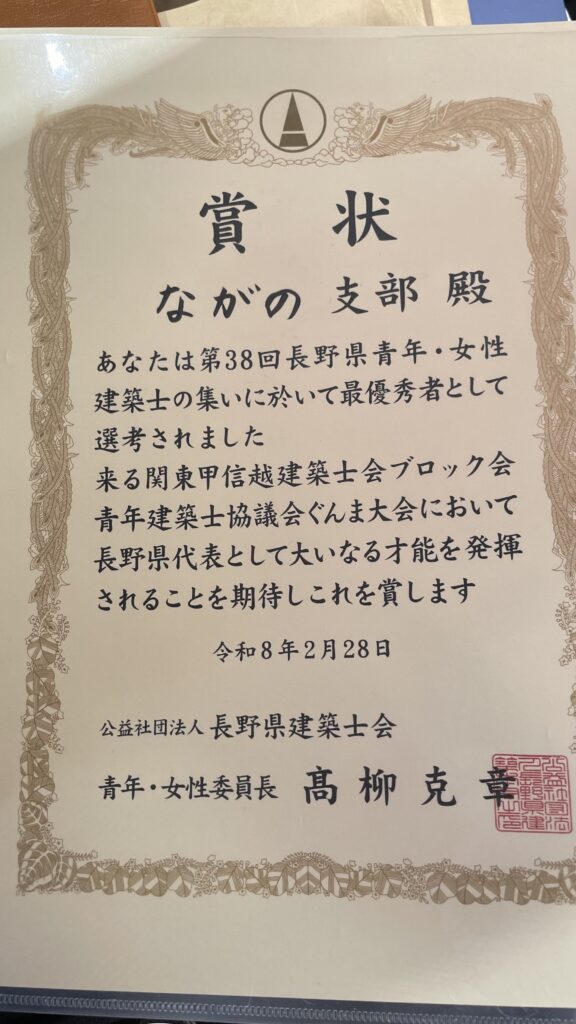 賞状
ながの 支部 殿
あなたは第38回長野県青年・女性
建築士の集いに於いて最優秀者として
選考されました
来る関東甲信越建築士会ブロック会
青年建築士協議会ぐんま大会において
長野県代表として大いなる才能を発揮
されることを期待しこれを賞します
令和8年2月28日
公益社団法人 長野県建築士会
青年・女性委員長 髙柳克章